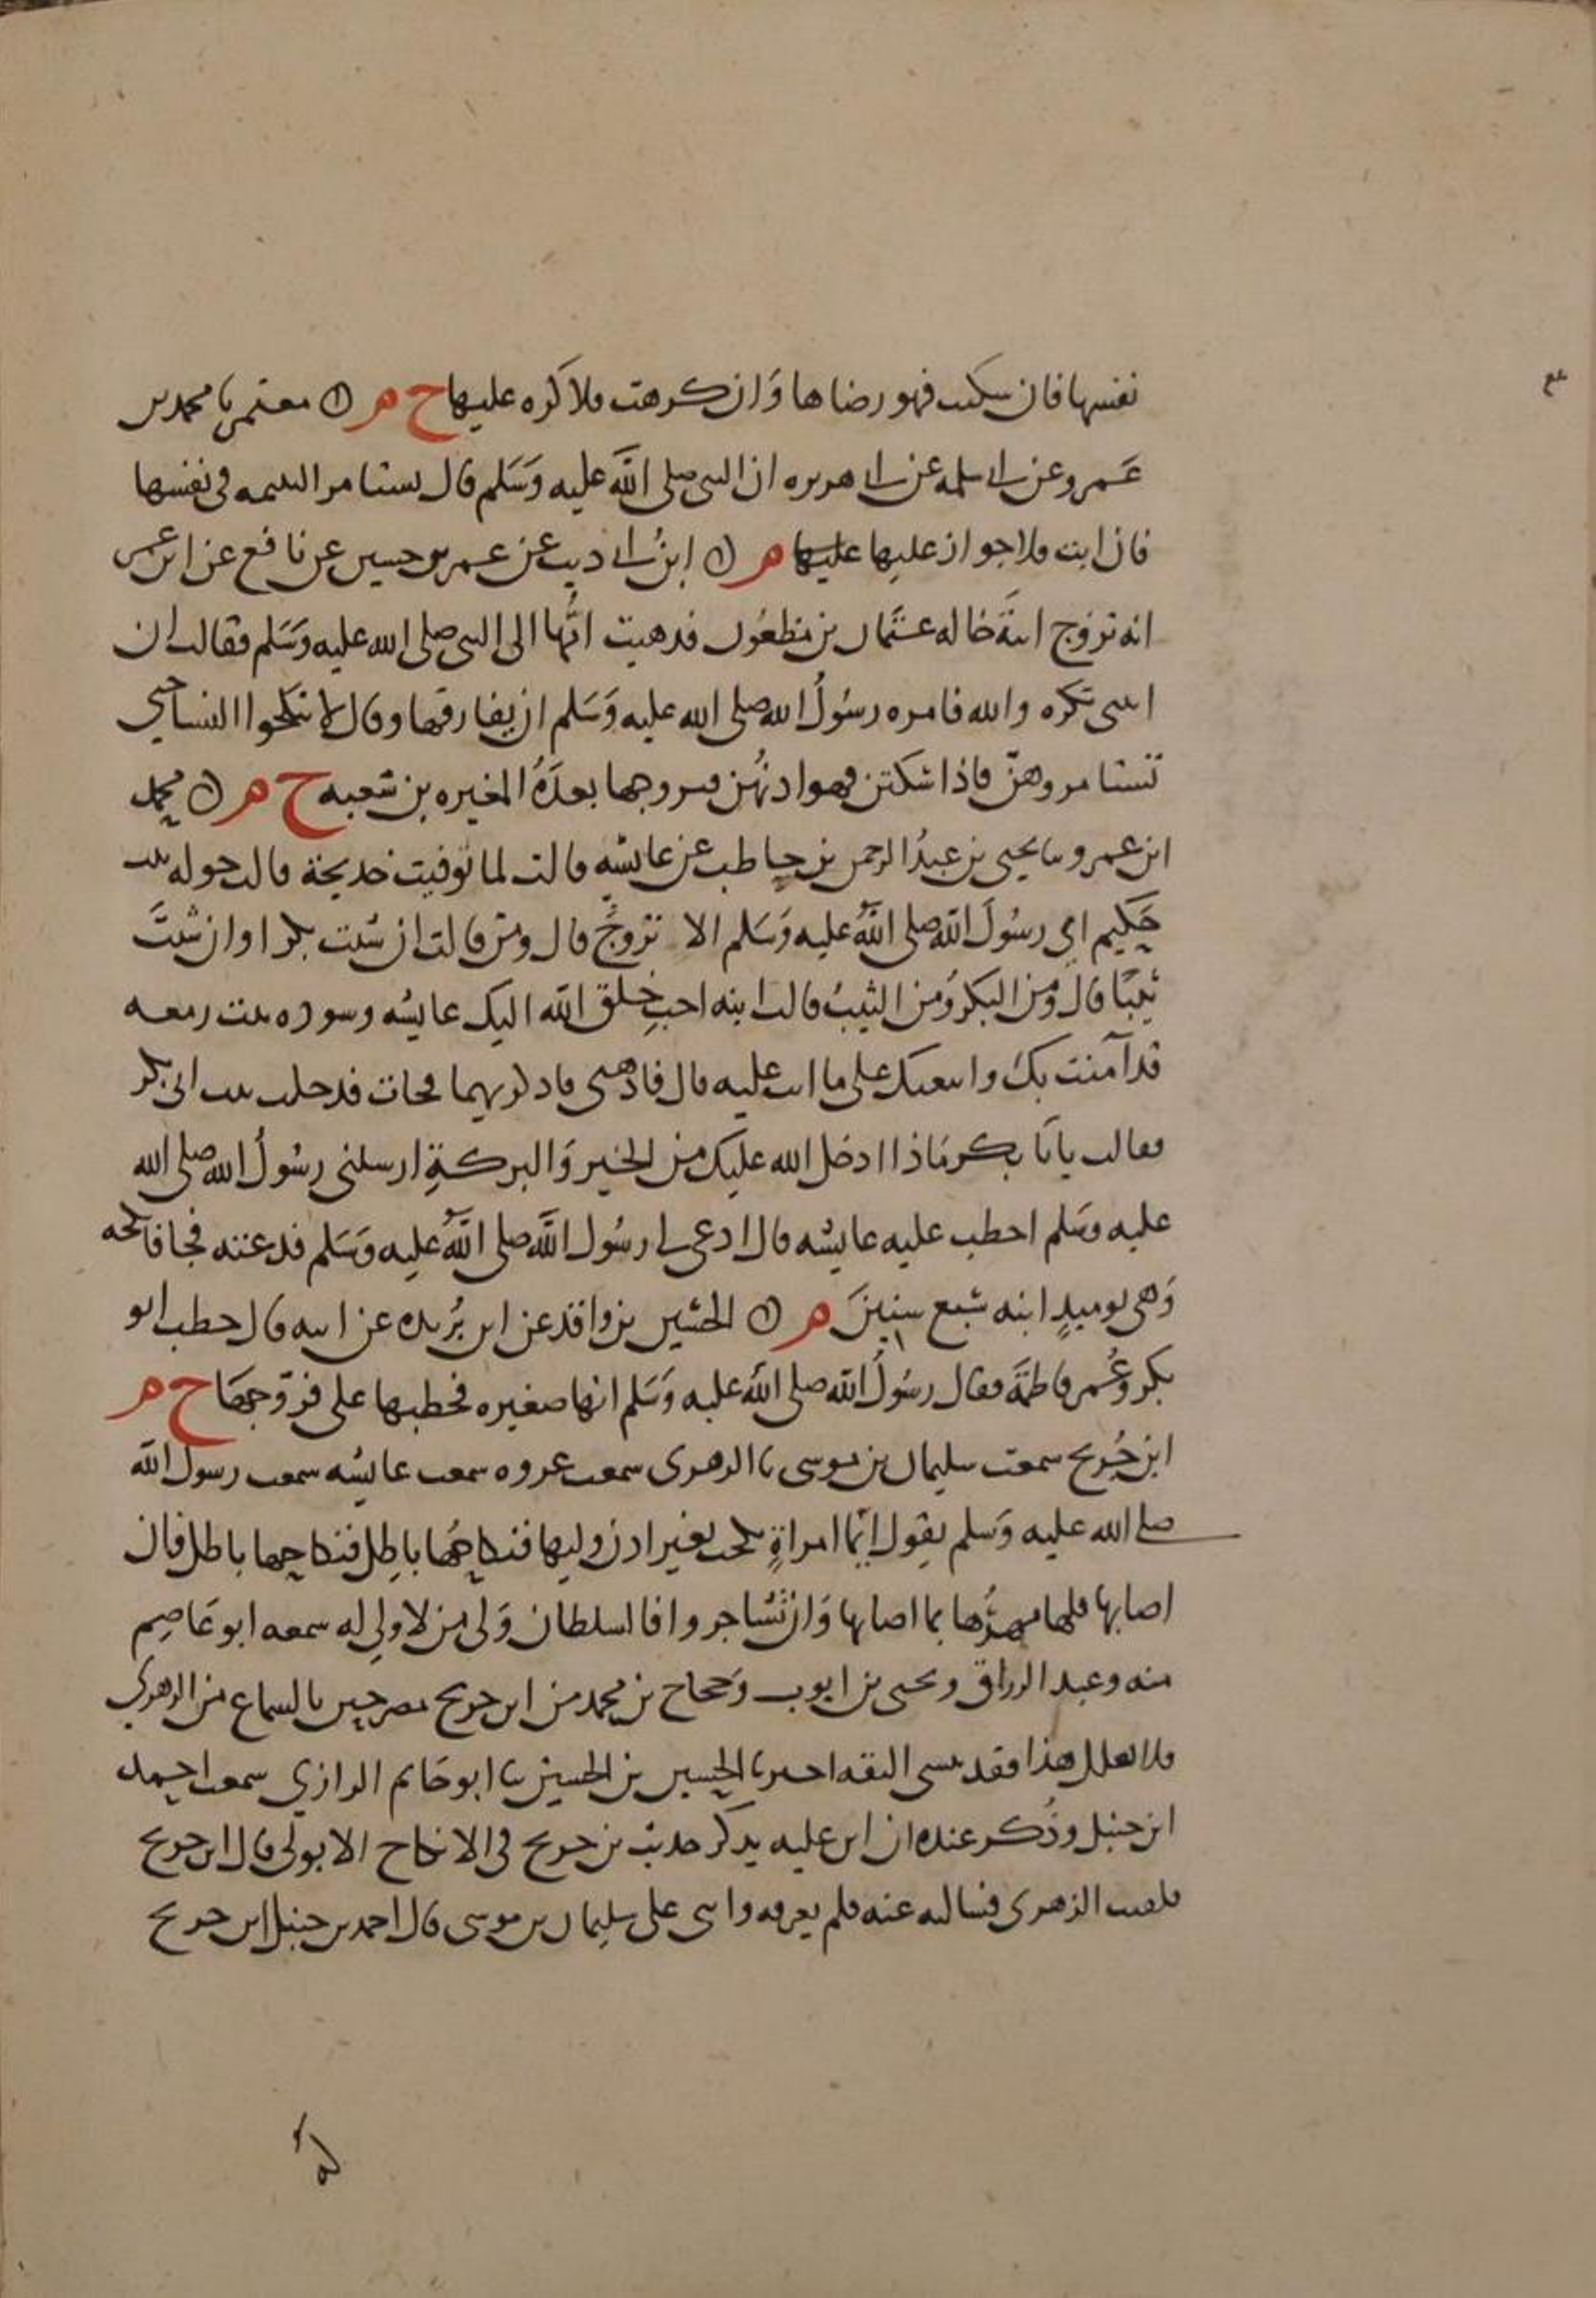 نفسها فان سكتت فهو رضاها وَان كرهت فلا كره عليها ح هر ن معتمر نا محمد بن
عَمرو عن ابي سلمه عن ابي هريره ان النبي صلى اللَّه عليه وَسَلم قال تستامر اليتيمه في نفسها
فان ابت فلا جواز عليها عليها هر ن ابنُ ابي ديب عن عمر بن حسين عن نافع عن ابن عمر
انه تزوج ابنةَ خاله عثمان بن مظعُون فذهبت امُّها الى النبي صلى الله عليه وَسَلم فقالت ان
ابنتي تكره والله فامره رسُولُ الله صلى الله عليه وَسَلم ان يفارقها وقال لا تنكحوا النسا حتي
تستامروهنّ فاذا سكتن فهو اذنُهن فتزوجها بعدَهُ المغيره بن شعبه ح هر ن محمد
ابن عمرو نا يحيى بن عبدُ الرحمن بن حاطب عن عايشه قالت لما توفيت خديجة قالت خوله بنت
حَكيم اي رسُولَ اللَّه صلى اللَّهُ عليه وَسَلم الا تزوجُ قال ومَن قالت ان شئت بكرا وان شئتَ
ثيبًا قال ومَن البكر وَمن الثيبُ قالت ابنه احبِ خلق اللَّه اليك عايشه وسوده بنت زمعه
قد آمنت بك واتبعتك على ما انت عليه قال فاذهبي فاذكريهما فجات فدخلت بيت ابي بكر
فقالت يابَا بكر مَاذا ادخل الله عليك من الخير وَالبركةِ ارسلني رسُولُ الله صلى الله
عليه وسَلم اخطب عليه عايشه قال ادعي لي رسُول اللَّه صلى اللَّهُ عليه وَسَلم فدعته فجا فانكحه
وَهي يوميدٍ ابنه سَبع سنينَ هر ن الحسين بن واقد عن ابن بُريده عن ابيه قال خطب ابو
بكر وعُمر فاطمَة فقال رسُولُ اللَّه صلى اللَّه عليه وَسَلم انها صغيره فخطبها على فزوجهَا ح هر
ابن جُريج سمعت سليمان بن موسى نا الزهرى سمعت عروه سمعت عايشه سمعت رسول اللَّه
صلى الله عليه وَسلم يقول ايّما امراةٍ نكحت بغير اذن وليها فنكاحُها باطِل فنكاحها باطل فان
اصابها فلها مهرُها بما اصابها وَان تشاجروا فالسلطان وَلى من لا ولى له سمعه ابو عَاصِم
منه وعبد الرزاق ويحيى بن ايوب وَحجاج بن محمد من ابن جريج مصرحين بالسماع من الزهري
فلا تعلل هذا فقد ينسى الثقه اخبرنا الحسين بن الحسين نا ابو حَاتم الرازي سمعت احمد
ابن حنبل وذُكر عنده ان ابن عليه يذكر حديث بن جريج في لا نكاح الا بولى قال ابن جريج
فلقيت الزهرى فسالته عنه فلم يعرفه واثنى على سليمان بن موسى قال احمد بن حنبل ابن جريج